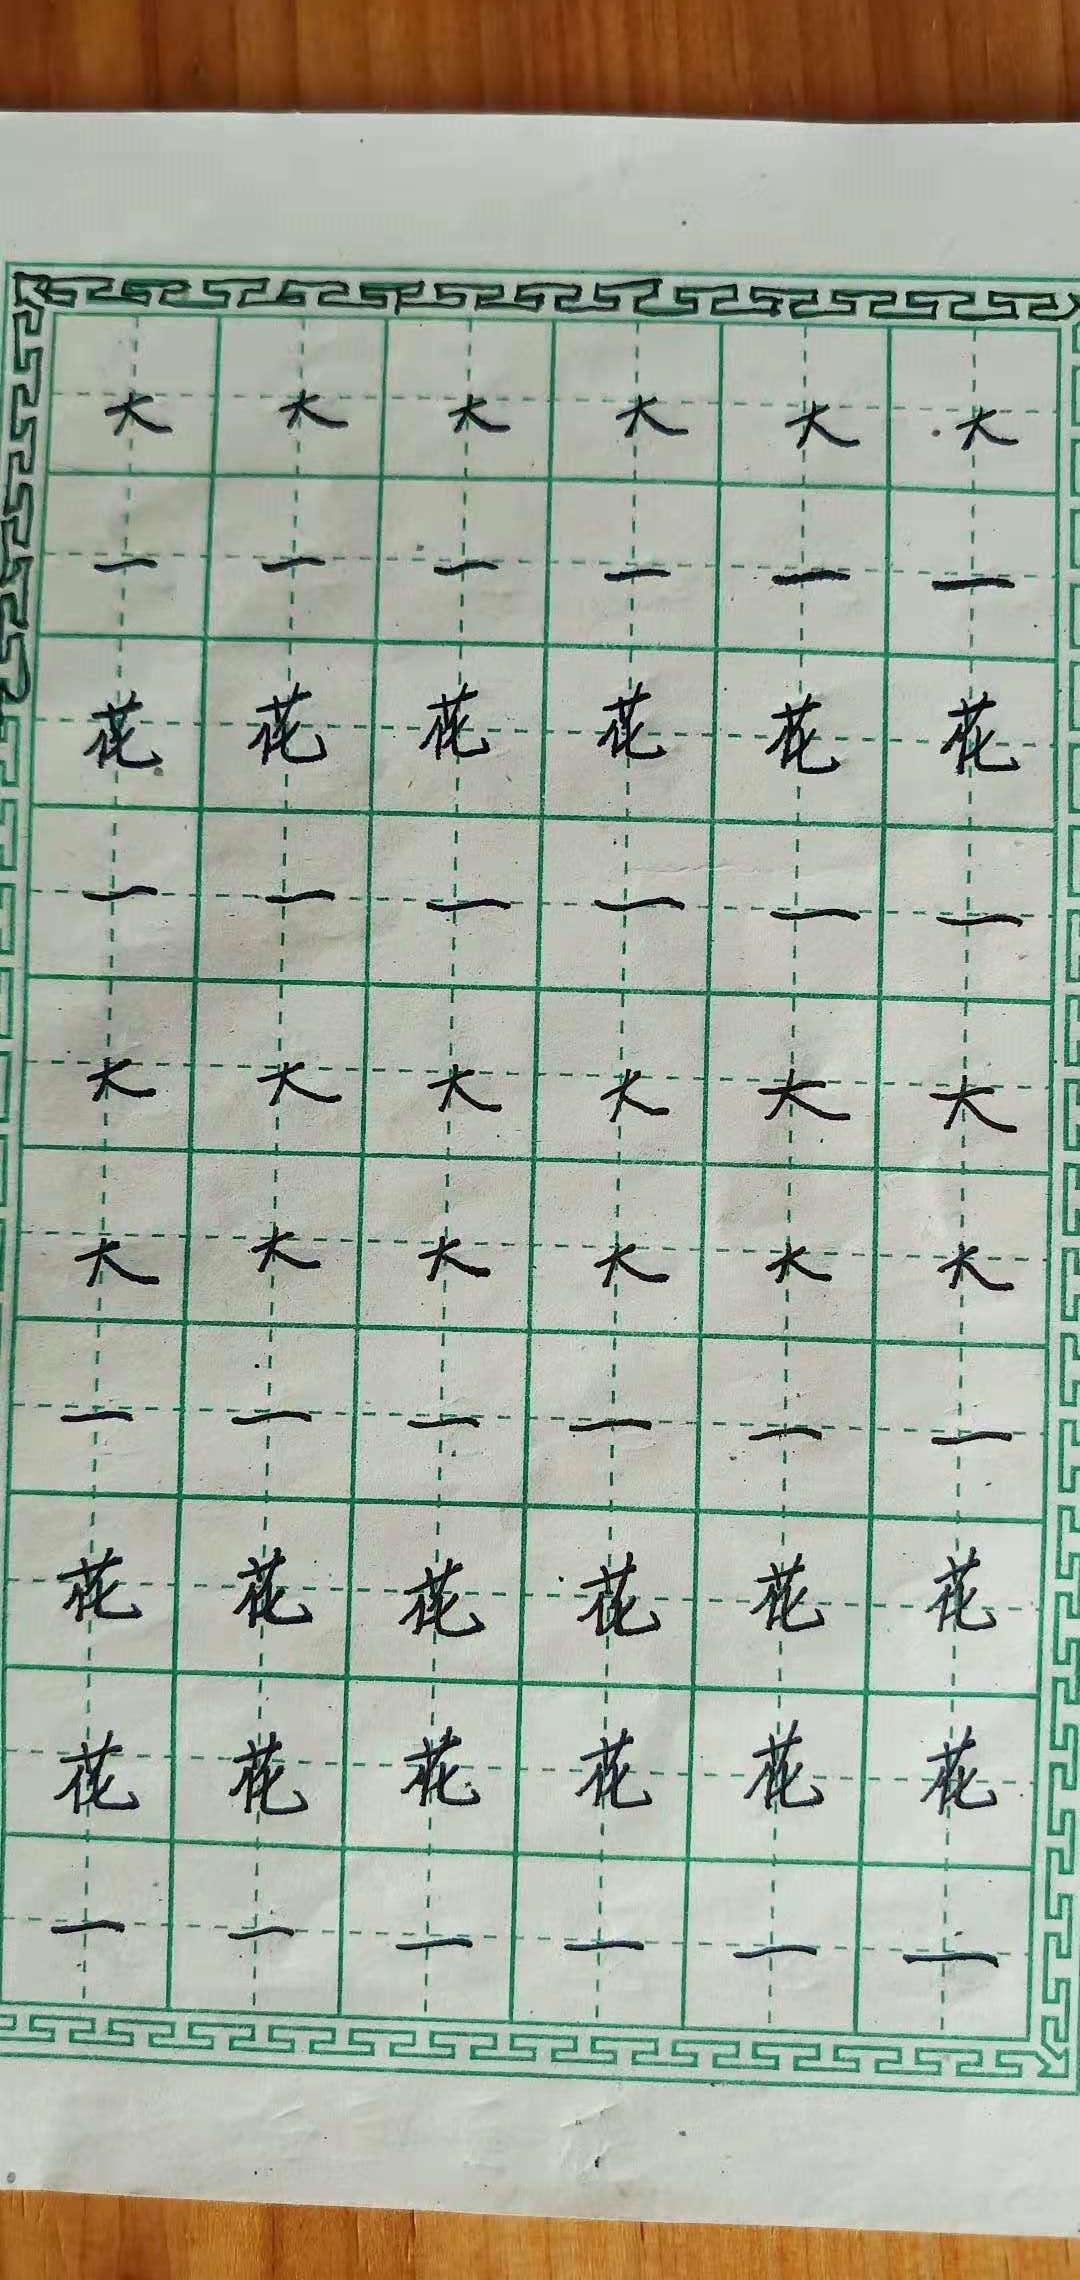 大大大大大大
一一一一一一
花花花花花花
一一一一一一
大大大大大大
大大大大大大
一一一一一一
花花花花花花
花花花花花花
一一一一一一